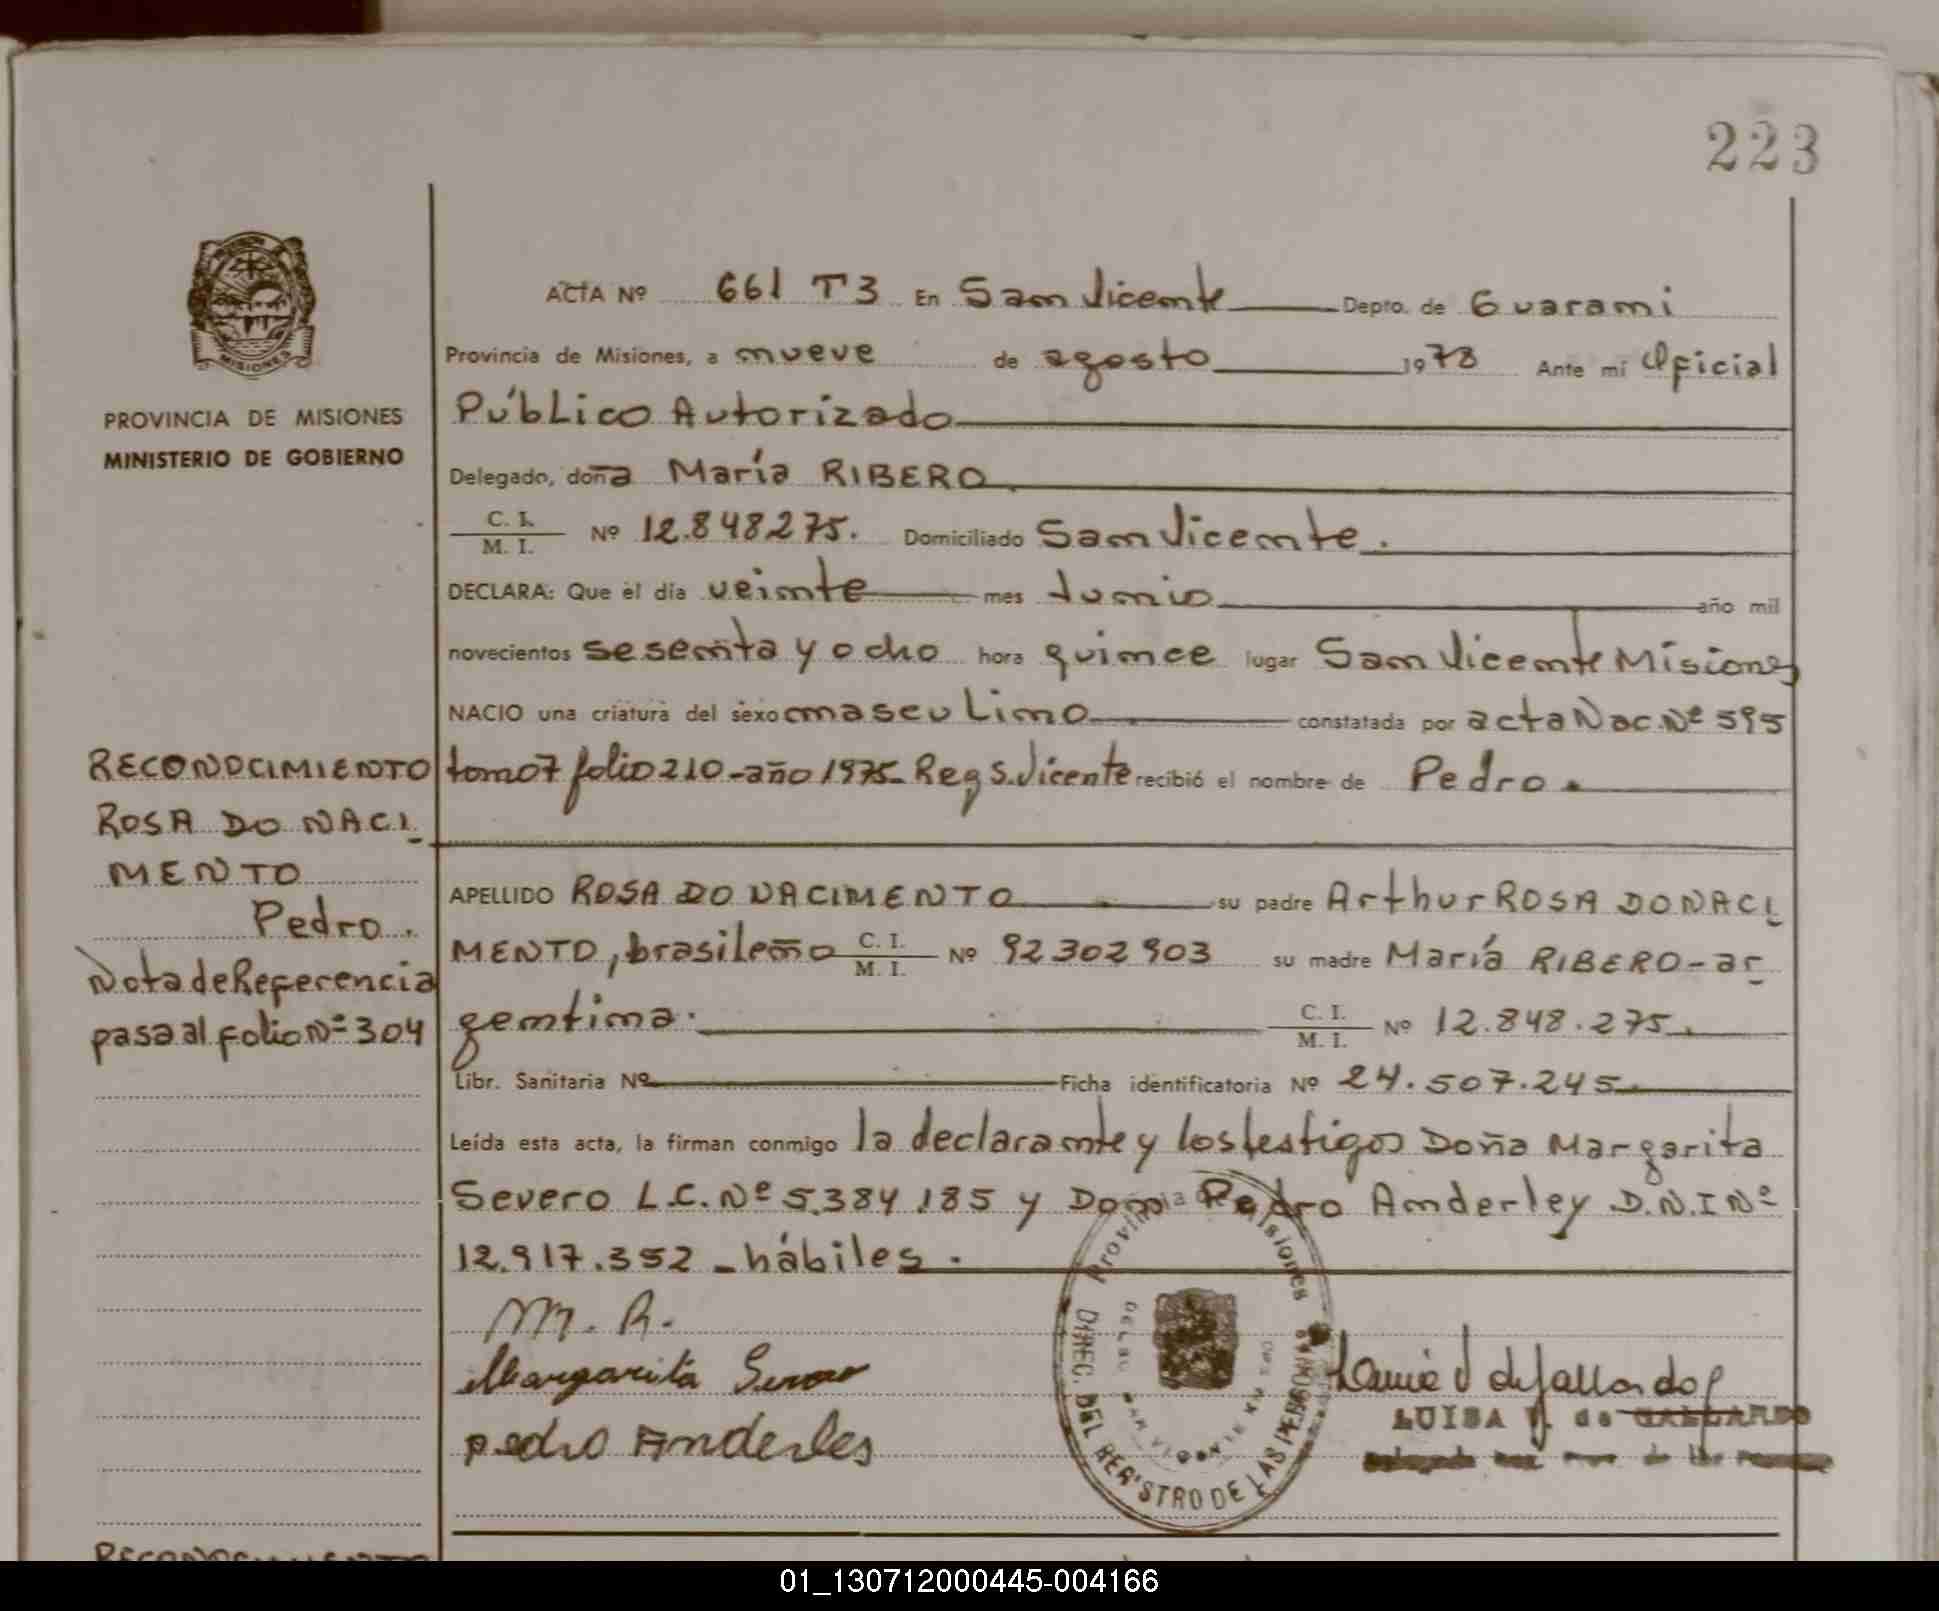 223
MISIONES
PROVINCIA DE MISIONES
MINISTERIO DE GOBIERNO
ACTA Nº 661 T3 En San Vicente Depto. de Guarani
Provincia de Misiones, a nueve de agosto 1978 Ante mí Oficial
Público Autorizado
Delegado, doña María RIBERO
C. I. / M. I. Nº 12.848275. Domiciliado San Vicente.
DECLARA: Que el día veinte mes Junio año mil
novecientos sesenta y ocho hora quince lugar San Vicente Misiones
NACIO una criatura del sexo masculino constatada por acta Nac. Nº 595
tomo 7 folio 210 - año 1975 - Reg S. Vicente recibió el nombre de Pedro.
RECONOCIMIENTO
ROSA DO NACI
MENTO
Pedro.
Nota de Referencia
pasa al folio Nº 304
APELLIDO ROSA DO NACIMENTO su padre Arthur ROSA DO NACI
MENTO, brasileño C. I. / M. I. Nº 92302903 su madre María RIBERO - ar
gentina. C. I. / M. I. Nº 12.848.275.
Libr. Sanitaria Nº Ficha identificatoria Nº 24.507.245
Leída esta acta, la firman conmigo la declarante y los testigos Doña Margarita
Severo L.C. Nº 5.384.185 y Don Pedro Anderley D.N.I Nº
12.917.352 - hábiles.
M. R.
Margarita Severo
pedro Anderles
Provincia de Misiones
DIREC. DEL REGISTRO DE LAS PERSONAS
LUISA V. de GALLARDO
RECONOCIMIENTO
01_130712000445-004166